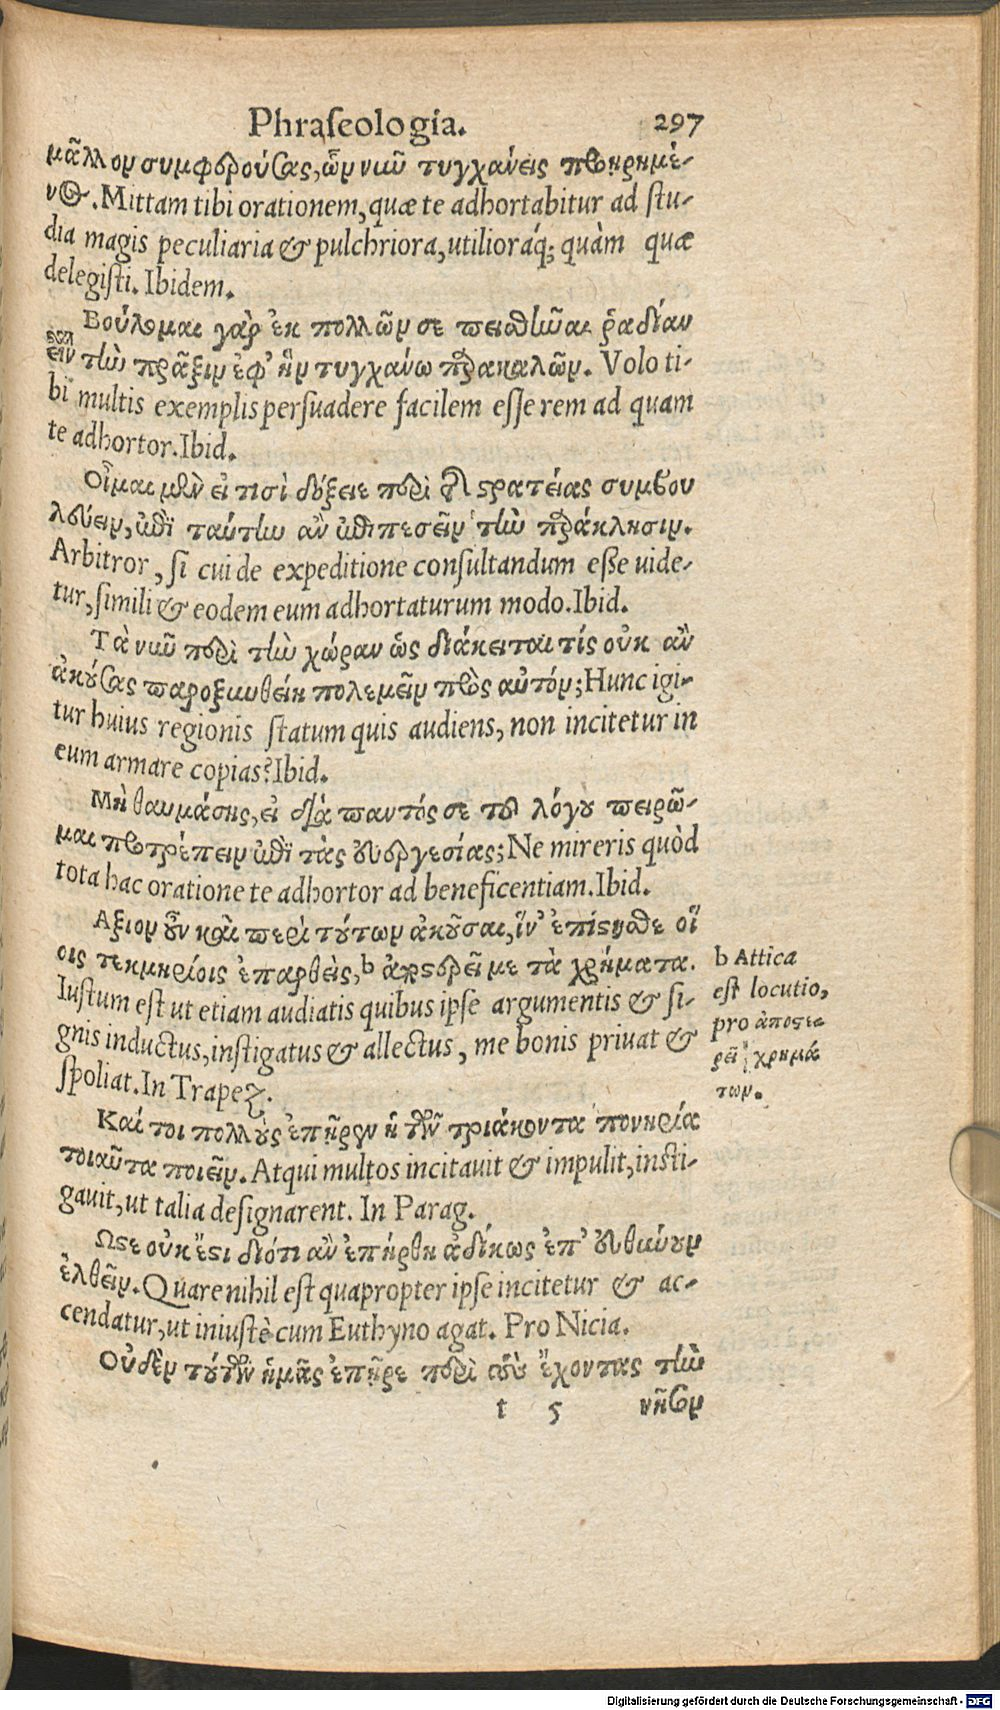 Phraseologia. 297
μᾶλλον συμφερούσας, ὧν νῦν τυγχάνεις προῃρημέ-
νος. Mittam tibi orationem, quæ te adhortabitur ad stu-
dia magis peculiaria & pulchriora, utilioráq; quàm quæ
delegisti. Ibidem.
Βούλομαι γὰρ ἐκ πολλῶν σε πεισθῆναι ῥαδίαν
εἶναι
τὴν πρᾶξιν ἐφ' ἣν τυγχάνω παρακαλῶν. Volo ti-
bi multis exemplis persuadere facilem esse rem ad quam
te adhortor. Ibid.
Οἶμαι μὲν εἰ τισὶ δόξειε περὶ τῆς στρατείας συμβου
λεύειν, ἐπὶ ταύτην ἂν ἐπιπεσεῖν τὴν παράκλησιν.
Arbitror, si cui de expeditione consultandum esse uide-
tur, simili & eodem eum adhortaturum modo. Ibid.
Τὰ νῦν περὶ τὴν χώραν ὡς διάκειται τίς οὐκ ἂν
ἀκούσας παροξυνθείη πολεμεῖν πρὸς αὐτόν; Hunc igi-
tur huius regionis statum quis audiens, non incitetur in
eum armare copias? Ibid.
Μὴ θαυμάσῃς, εἰ διὰ παντός σε τοῦ λόγου πειρῶ-
μαι προτρέπειν ἐπὶ τὰς εὐεργεσίας; Ne mireris quòd
tota hac oratione te adhortor ad beneficentiam. Ibid.
Αξιον οὖν καὶ περὶ τούτων ἀκοῦσαι, ἵν' ἐπίστησθε οἵ
οις τεκμηρίοις ἐπαρθεὶς, b ἀποστερεῖ με τὰ χρήματα.
Iustum est ut etiam audiatis quibus ipse argumentis & si-
gnis inductus, instigatus & allectus, me bonis priuat &
spoliat. In Trapez.
b Attica
est locutio,
pro ἀποστε-
ρεῖ χρημά
των.
Καί τοι πολλοὺς ἐπῆρεν ἡ τῶν τριάκοντα πονηρία
τοιαῦτα ποιεῖν. Atqui multos incitauit & impulit, insti-
gauit, ut talia designarent. In Parag.
Ωστε οὐκ ἔστι διότι ἂν ἐπήρθη ἀδίκως ἐπ' Εὐθύνουν
ἐλθεῖν. Quare nihil est quapropter ipse incitetur & ac-
cendatur, ut iniustè cum Euthyno agat. Pro Nicia.
Οὐδὲν τούτων ἡμᾶς ἐπῇρε περὶ τοὺς ἔχοντας τὴν
t 5 νῆσον
Digitalisierung gefördert durch die Deutsche Forschungsgemeinschaft - DFG